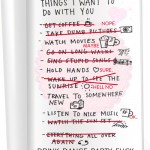 THINGS I WANT TO
DO WITH YOU
- GET COFFEE NOPE.
- TAKE DUMB PICTURES
- WATCH MOVIES MAYBE
- GO ON LONG WALKS
- SING STUPID SONGS
- HOLD HANDS SURE
- WAKE UP TO SEE THE
SUNRISE HELL NO!
- TRAVEL TO SOMEWHERE
NEW
- LISTEN TO NICE MUSIC
- WATCH THE SUN SET
- EVERYTHING ALL OVER
AGAIN